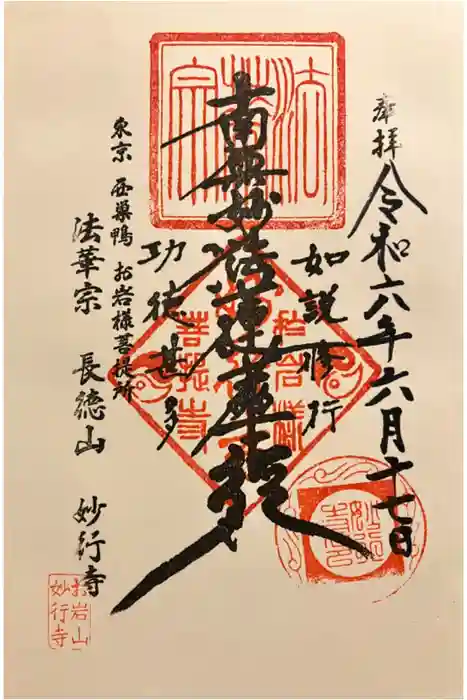 奉拝
令和六年六月十七日
如説修行
南無妙法蓮華経
功徳甚多
東京 西巣鴨 お岩様菩提所
法華宗 長徳山 妙行寺
法華宗
お岩様
菩提寺
お岩山
妙行寺